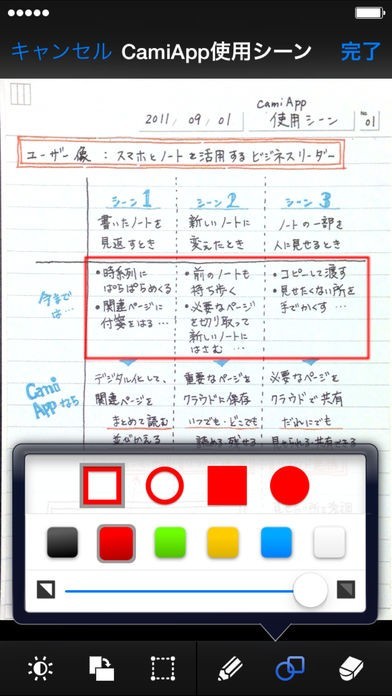 キャンセル CamiApp使用シーン 完了
CamiApp
2011, 09, 01 使用シーン No. 01
ユーザー像 : スマホとノートを活用するビジネスリーダー
シーン1 シーン2 シーン3
書いたノートを 新しいノートに ノートの一部を
見返すとき 変えたとき 人に見せるとき
今までは…
・時系列に ・前のノートも ・コピーして渡す
ぱらぱらめくる 持ち歩く ・見せたくない所を
・関連ページに ・必要なページ 手でかくす…
付箋をはる… を切り取って
新しいノートに
はさむ …
CamiAppなら
デジタル化して、 重要なページを 必要なページを
関連ページを クラウドに保存 クラウドで共有
まとめて読る いつでも・どこでも だれにでも
並びかえる 読める・残せる 見せられる・共有できる